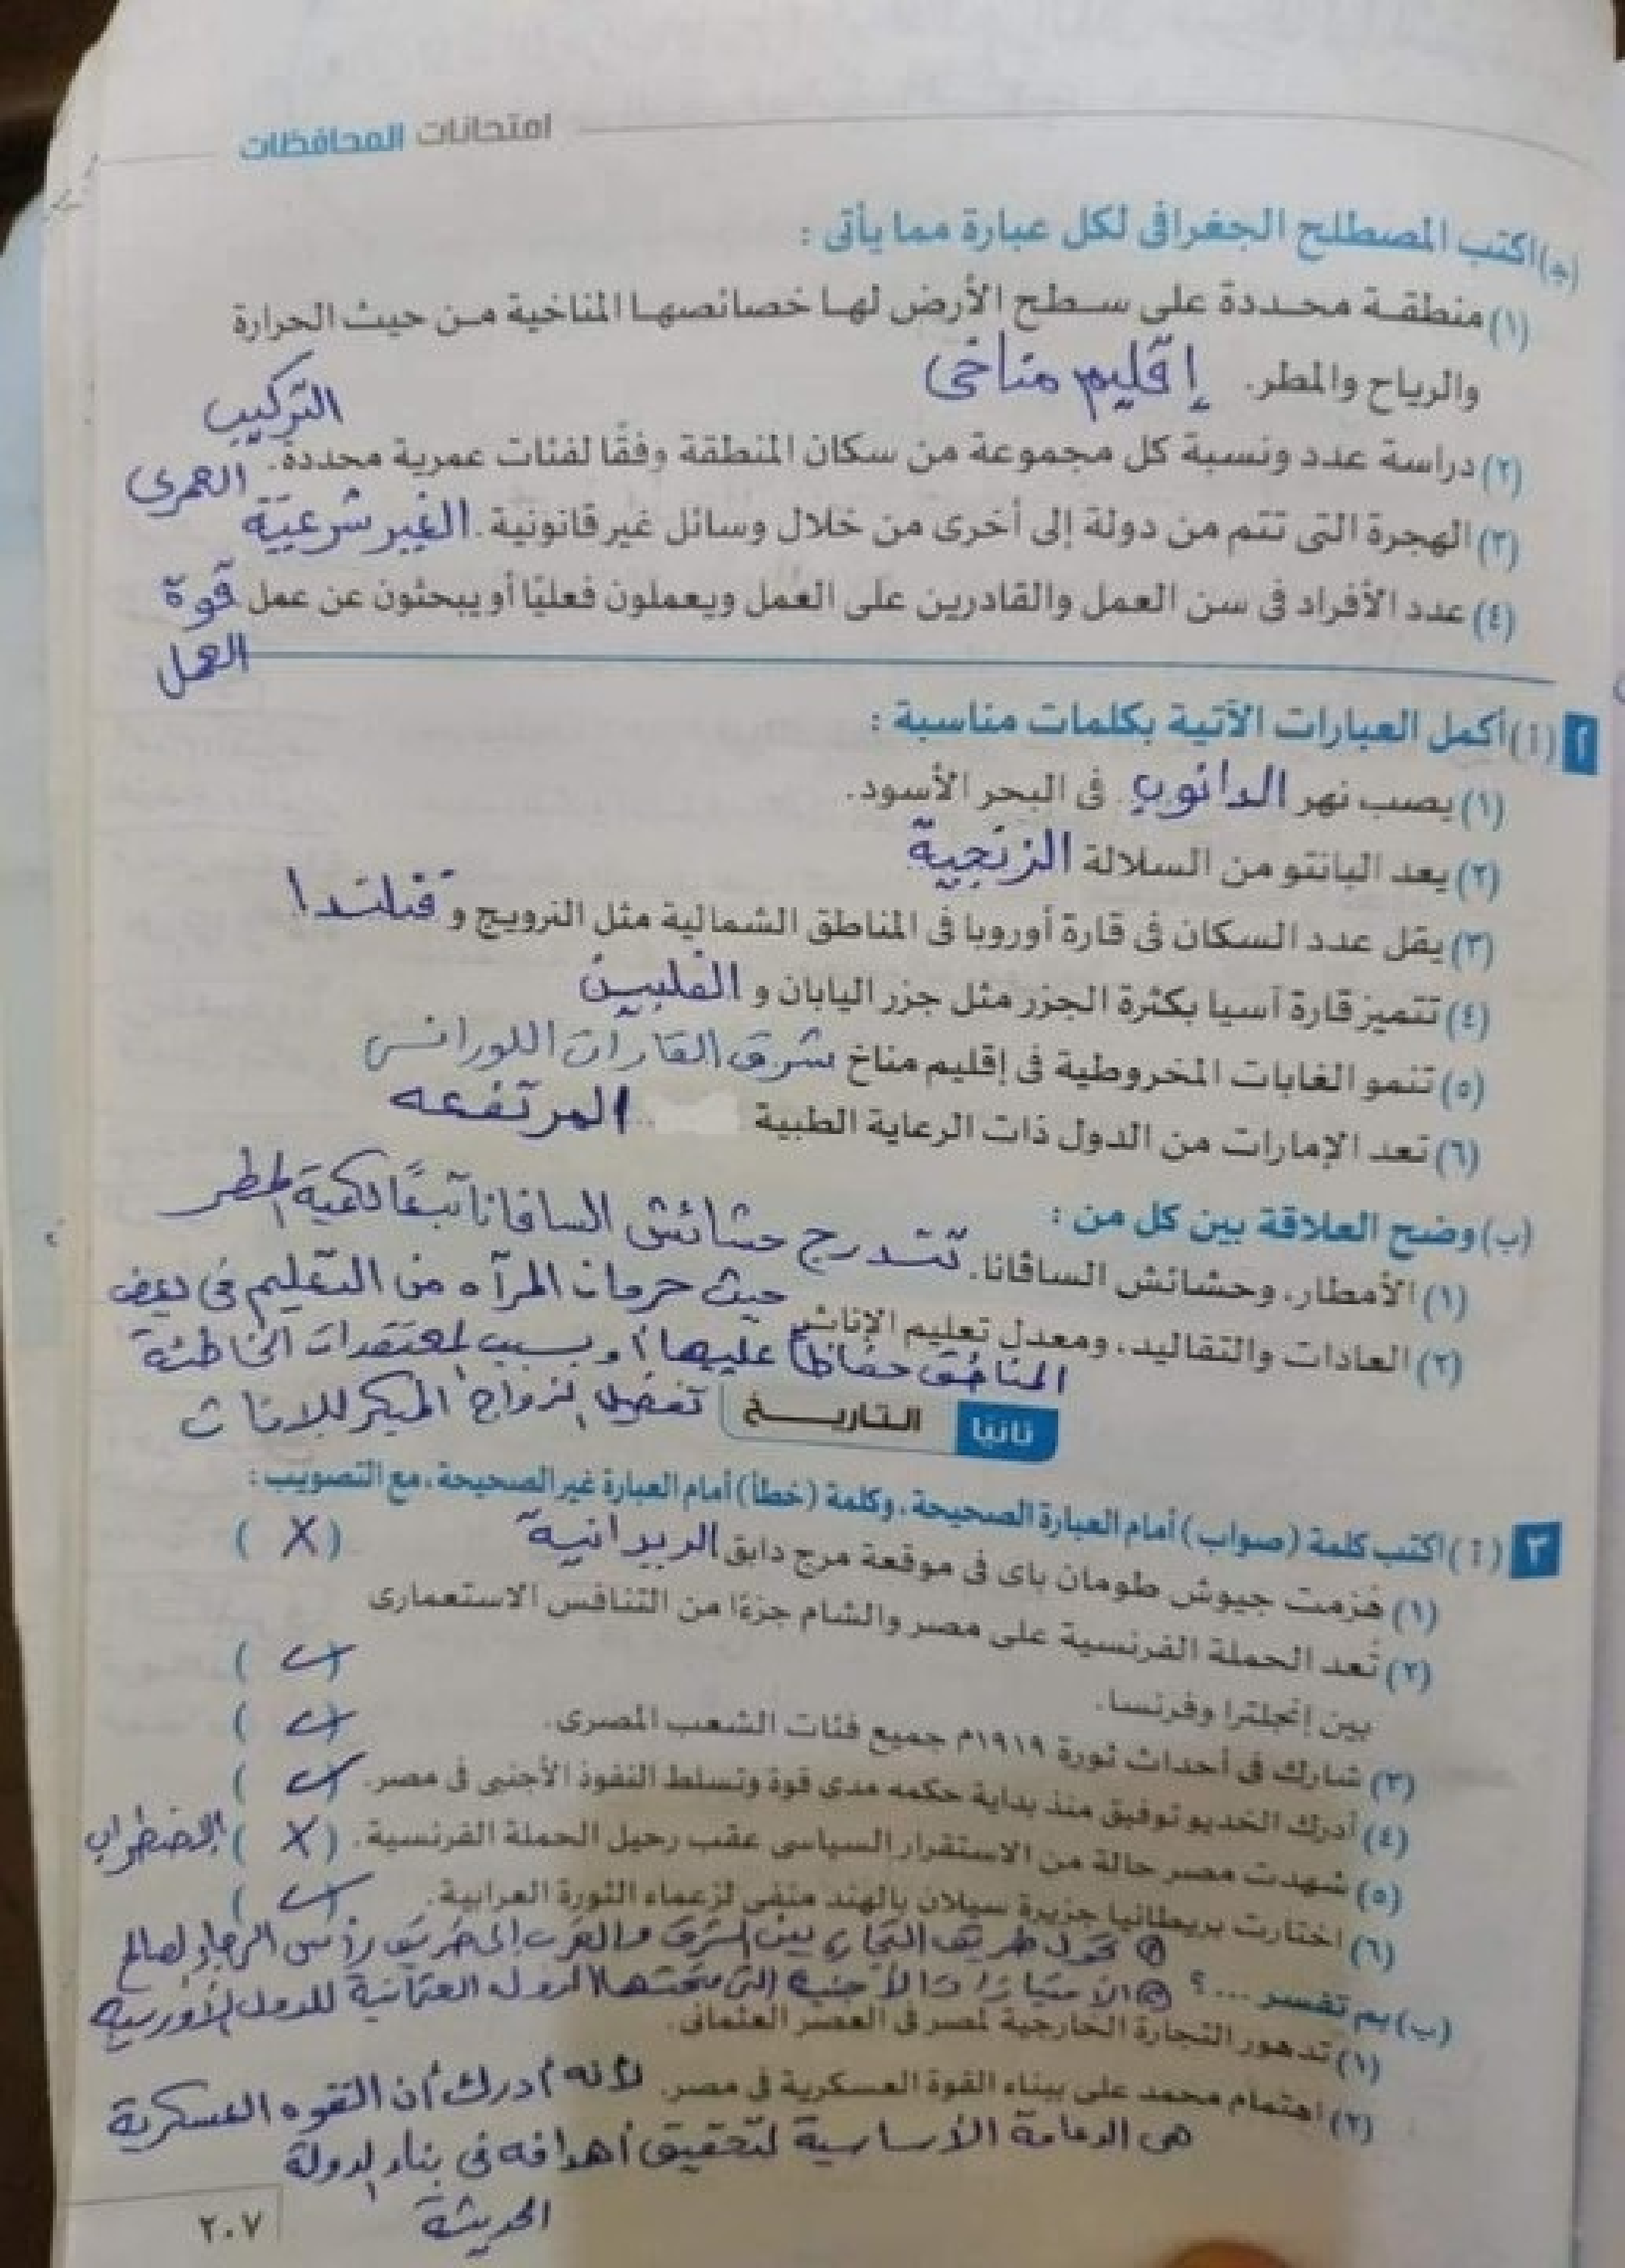 امتحانات المحافظات
(ج) اكتب المصطلح الجغرافى لكل عبارة مما يأتى :
(١) منطقة محددة على سطح الأرض لها خصائصها المناخية من حيث الحرارة
والرياح والمطر. إقليم مناخى
التركيب
(٢) دراسة عدد ونسبة كل مجموعة من سكان المنطقة وفقًا لفئات عمرية محددة. العمرى
(٣) الهجرة التى تتم من دولة إلى أخرى من خلال وسائل غير قانونية. الغير شرعية
(٤) عدد الأفراد فى سن العمل والقادرين على العمل ويعملون فعليًا أو يبحثون عن عمل قوة
العمل
٢ (أ) أكمل العبارات الآتية بكلمات مناسبة :
(١) يصب نهر الدانوب فى البحر الأسود.
(٢) يعد البانتو من السلالة الزنجية
(٣) يقل عدد السكان فى قارة أوروبا فى المناطق الشمالية مثل النرويج و فنلندا
(٤) تتميز قارة آسيا بكثرة الجزر مثل جزر اليابان و الفلبين
(٥) تنمو الغابات المخروطية فى إقليم مناخ شرق القارات اللورانسى
(٦) تعد الإمارات من الدول ذات الرعاية الطبية المرتفعه
(ب) وضح العلاقة بين كل من :
(١) الأمطار، وحشائش السافانا. تتدرج حشائش السافانا تبعًا لكمية المطر
(٢) العادات والتقاليد، ومعدل تعليم الإناث. حيث حرمان المرآه من التعليم فى بعض
المناطق حفاظًا عليها أو بسبب المعتقدات الخاطئة
تفضيل الزواج المبكر للاناث
ثانيا التاريخ
٣ (أ) اكتب كلمة (صواب) أمام العبارة الصحيحة، وكلمة (خطأ) أمام العبارة غير الصحيحة، مع التصويب :
(١) هُزمت جيوش طومان باى فى موقعة مرج دابق الريدانية (X)
(٢) تُعد الحملة الفرنسية على مصر والشام جزءًا من التنافس الاستعمارى
بين إنجلترا وفرنسا. (✓)
(٣) شارك فى أحداث ثورة ١٩١٩م جميع فئات الشعب المصرى. (✓)
(٤) أدرك الخديو توفيق منذ بداية حكمه مدى قوة وتسلط النفوذ الأجنبى فى مصر. (✓)
(٥) شهدت مصر حالة من الاستقرار السياسى عقب رحيل الحملة الفرنسية. (X) الاضطراب
(٦) اختارت بريطانيا جزيرة سيلان بالهند منفى لزعماء الثورة العرابية. (✓)
① تحول طريق التجارة بين الشرق والغرب إلى طريق رأس الرجاء الصالح
(ب) بم تفسر ...؟ ② الامتيازات الأجنبية التى منحتها الدولة العثمانية للدول الأوربية
(١) تدهور التجارة الخارجية لمصر فى العصر العثمانى.
(٢) اهتمام محمد على ببناء القوة العسكرية فى مصر. لأنه أدرك أن القوه العسكرية
هى الدعامة الأساسية لتحقيق أهدافه فى بناء الدولة
الحديثة
٢٠٧